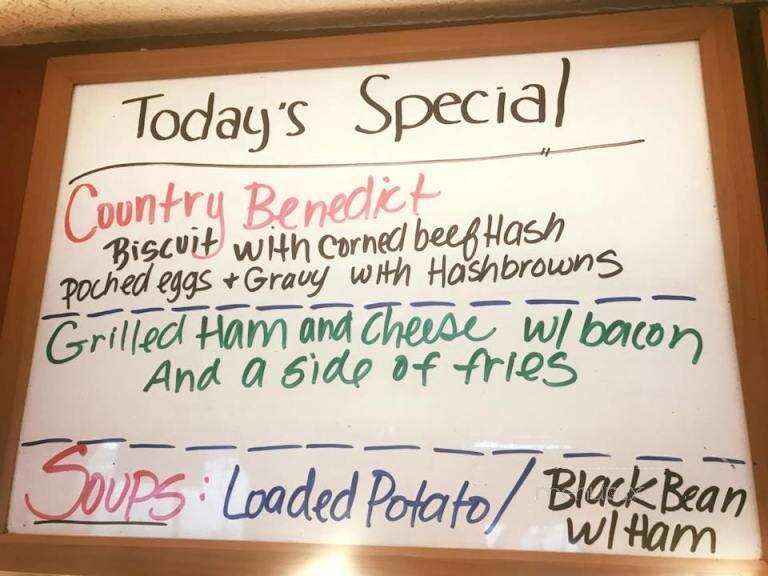 Today's Special
Country Benedict
Biscuit with Corned beef Hash
poched eggs + Gravy with Hashbrowns
Grilled Ham and Cheese w/ bacon
And a side of fries
Soups: Loaded Potato / Black Bean
w/ Ham